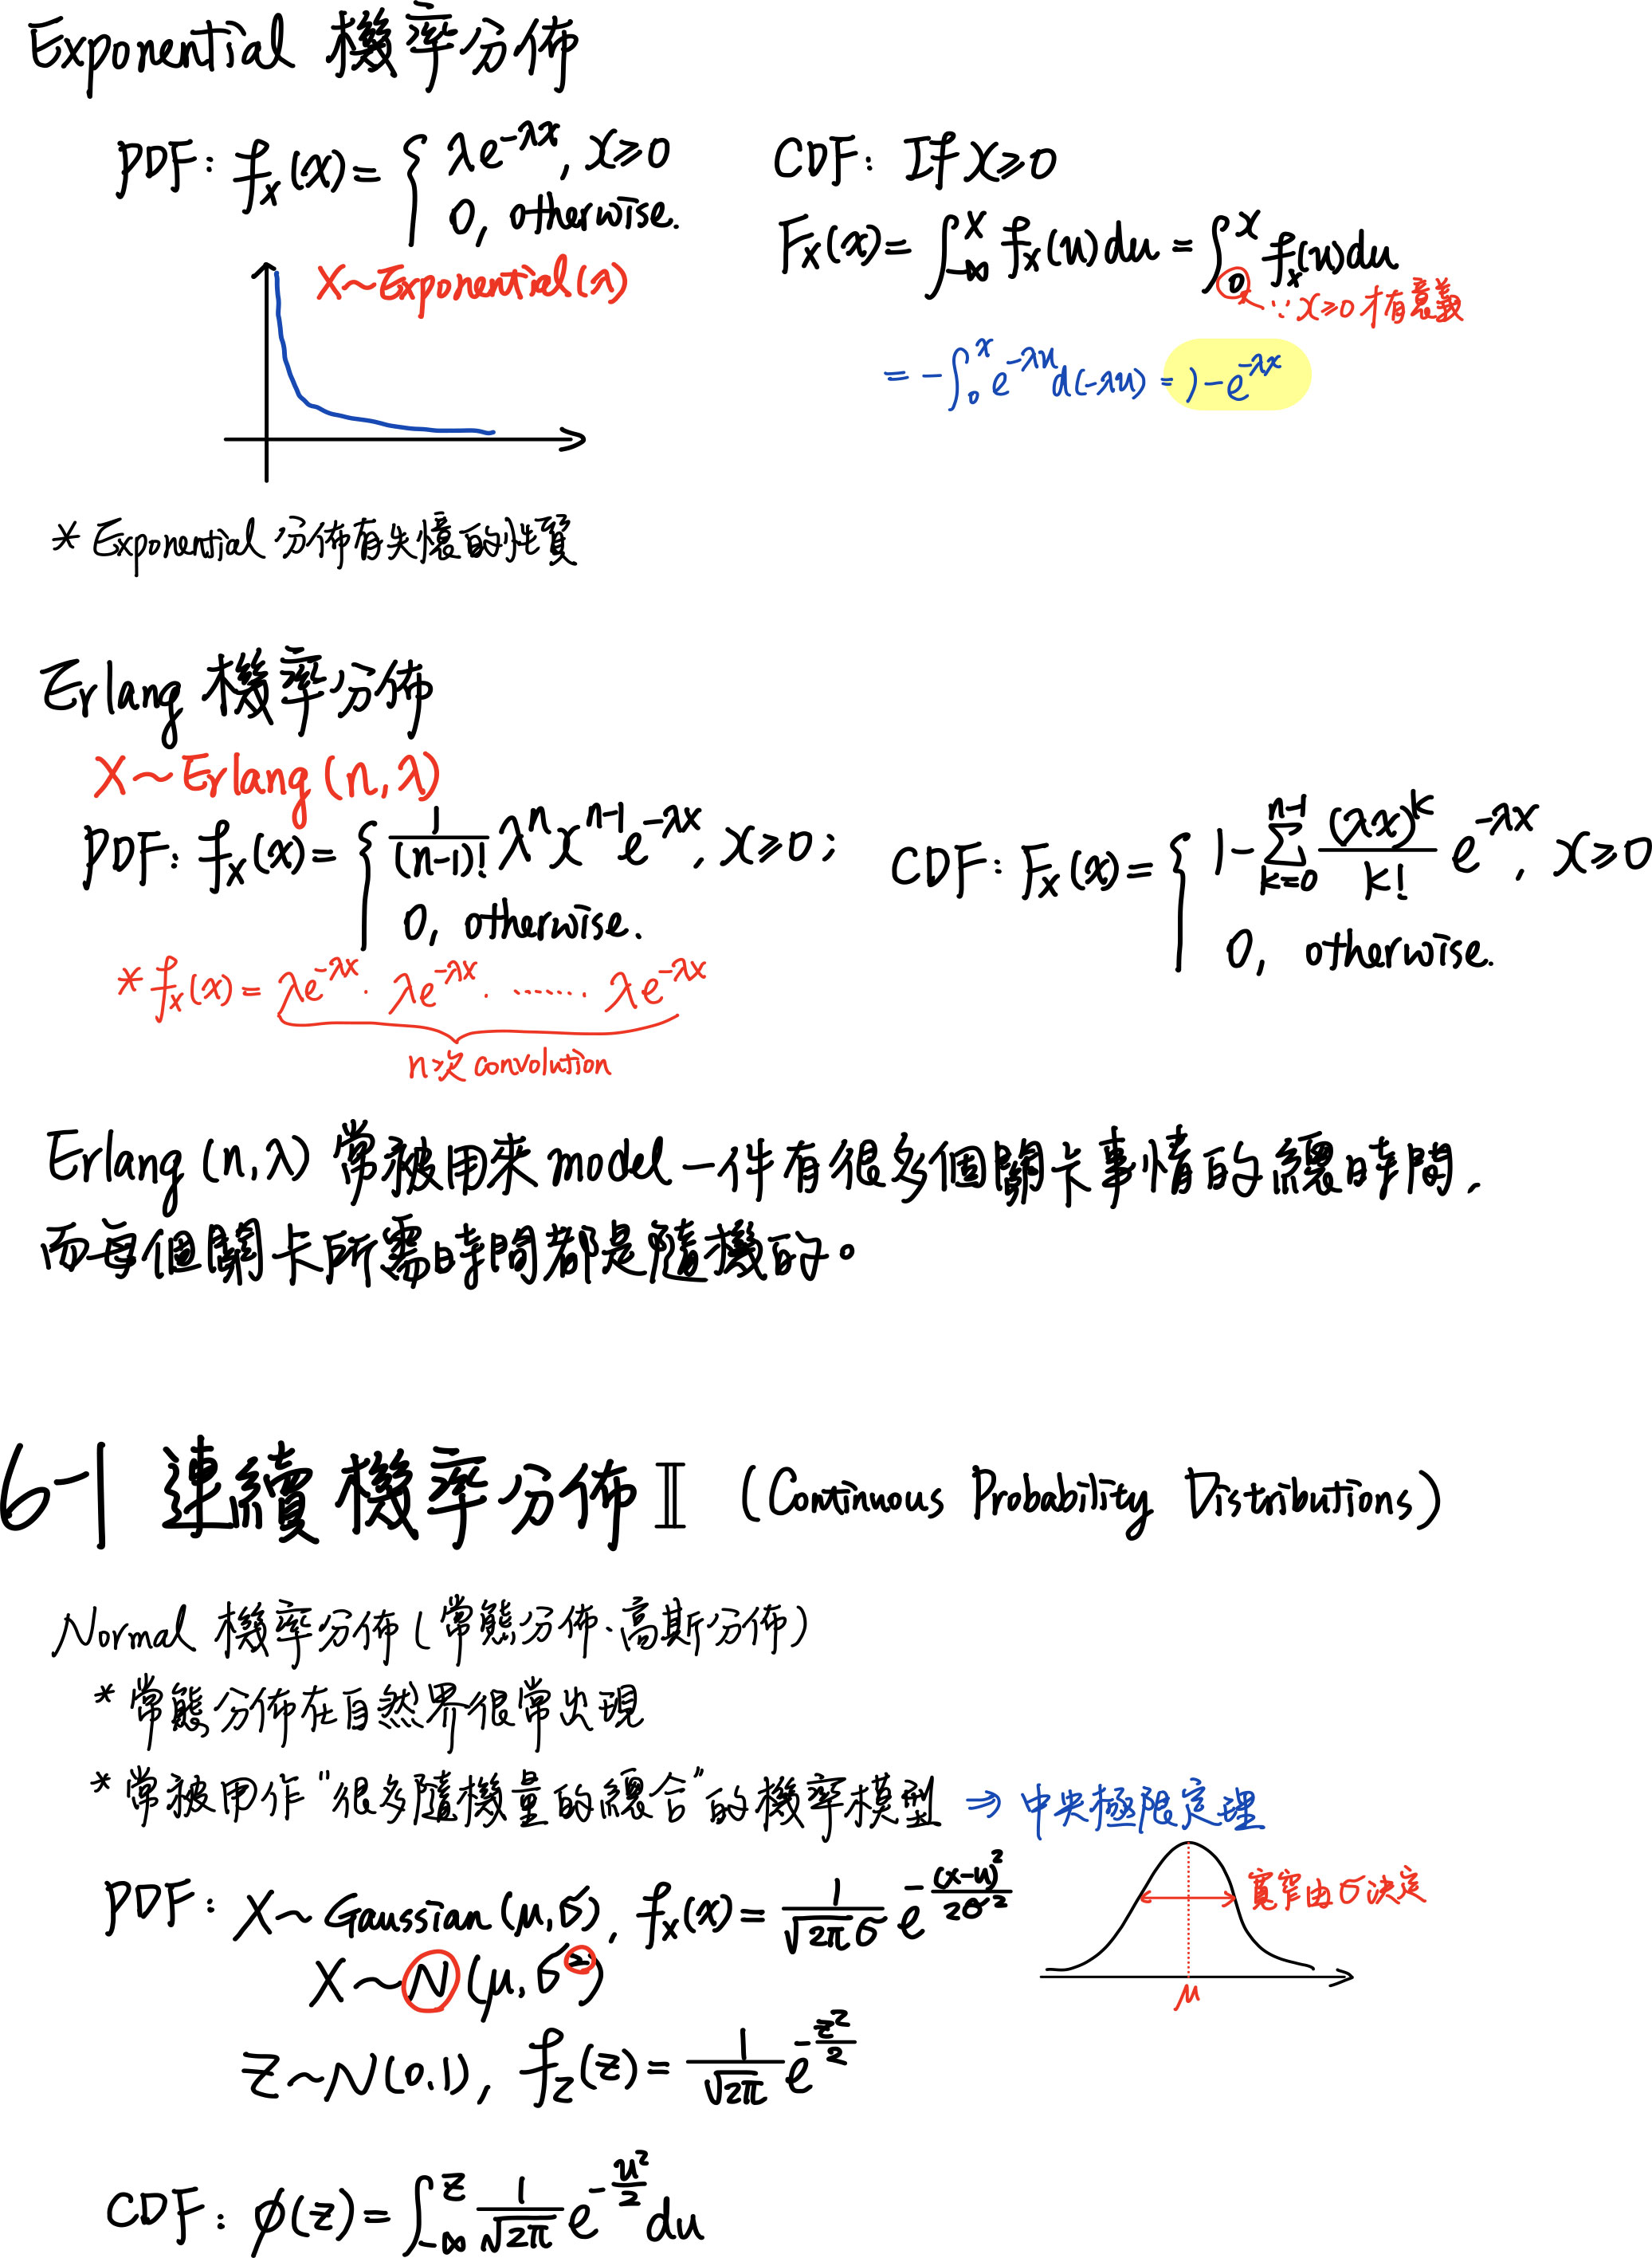 Exponential 機率分佈
PDF: f_X(x) = { λe^{-λx}, x≥0
0, otherwise.
X~Exponential(λ)
CDF: If x≥0
F_X(x) = ∫_{-∞}^{x} f_X(u)du = ∫_0^x f_X(u)du
∵ x≥0 才有意義
= -∫_0^x e^{-λu} d(-λu) = 1-e^{-λx}
* Exponential 分佈有失憶的性質
Erlang 機率分佈
X~Erlang(n,λ)
PDF: f_X(x) = { \frac{1}{(n-1)!} λ^n x^{n-1} e^{-λx}, x≥0;
0, otherwise.
CDF: F_X(x) = { 1-∑_{k=0}^{n-1} \frac{(λx)^k}{k!} e^{-λx}, x≥0
0, otherwise.
* f_X(x) = λe^{-λx} · λe^{-λx} · ······ λe^{-λx}
n次 convolution
Erlang (n,λ) 常被用來 model 一件有很多個關卡事情的總時間,
而每個關卡所需時間都是隨機的。
6-1 連續機率分佈 II (Continuous Probability Distributions)
Normal 機率分佈 (常態分佈、高斯分佈)
* 常態分佈在自然界很常出現
* 常被用作"很多隨機量的總合"的機率模型 ⇒ 中央極限定理
PDF: X~Gaussian(μ,σ), f_X(x) = \frac{1}{\sqrt{2π}σ} e^{-\frac{(x-u)^2}{2σ^2}}
寬窄由σ決定
μ
X~N(μ,σ^2)
Z~N(0,1), f_Z(z) = \frac{1}{\sqrt{2π}} e^{-\frac{z^2}{2}}
CDF: φ(z) = ∫_{-∞}^{z} \frac{1}{\sqrt{2π}} e^{-\frac{u^2}{2}} du